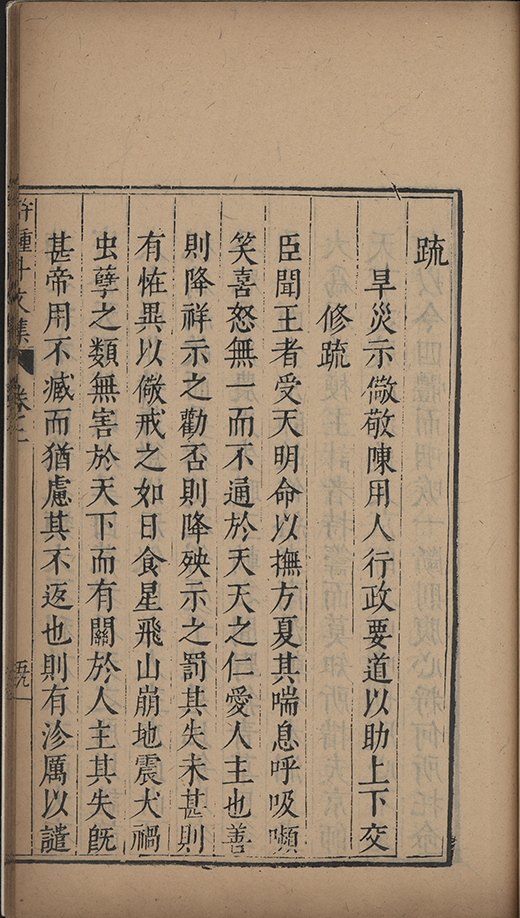 疏
旱災示儆敬陳用人行政要道以助上下交
修疏
臣聞王者受天明命以撫方夏其喘息呼吸嚬
笑喜怒無一而不通於天天之仁愛人主也善
則降祥示之勸否則降殃示之罰其失未甚則
有恠異以儆戒之如日食星飛山崩地震犬禍
虫孽之類無害於天下而有關於人主其失旣
甚帝用不臧而猶慮其不返也則有沴厲以譴
許鍾斗文集 卷之二